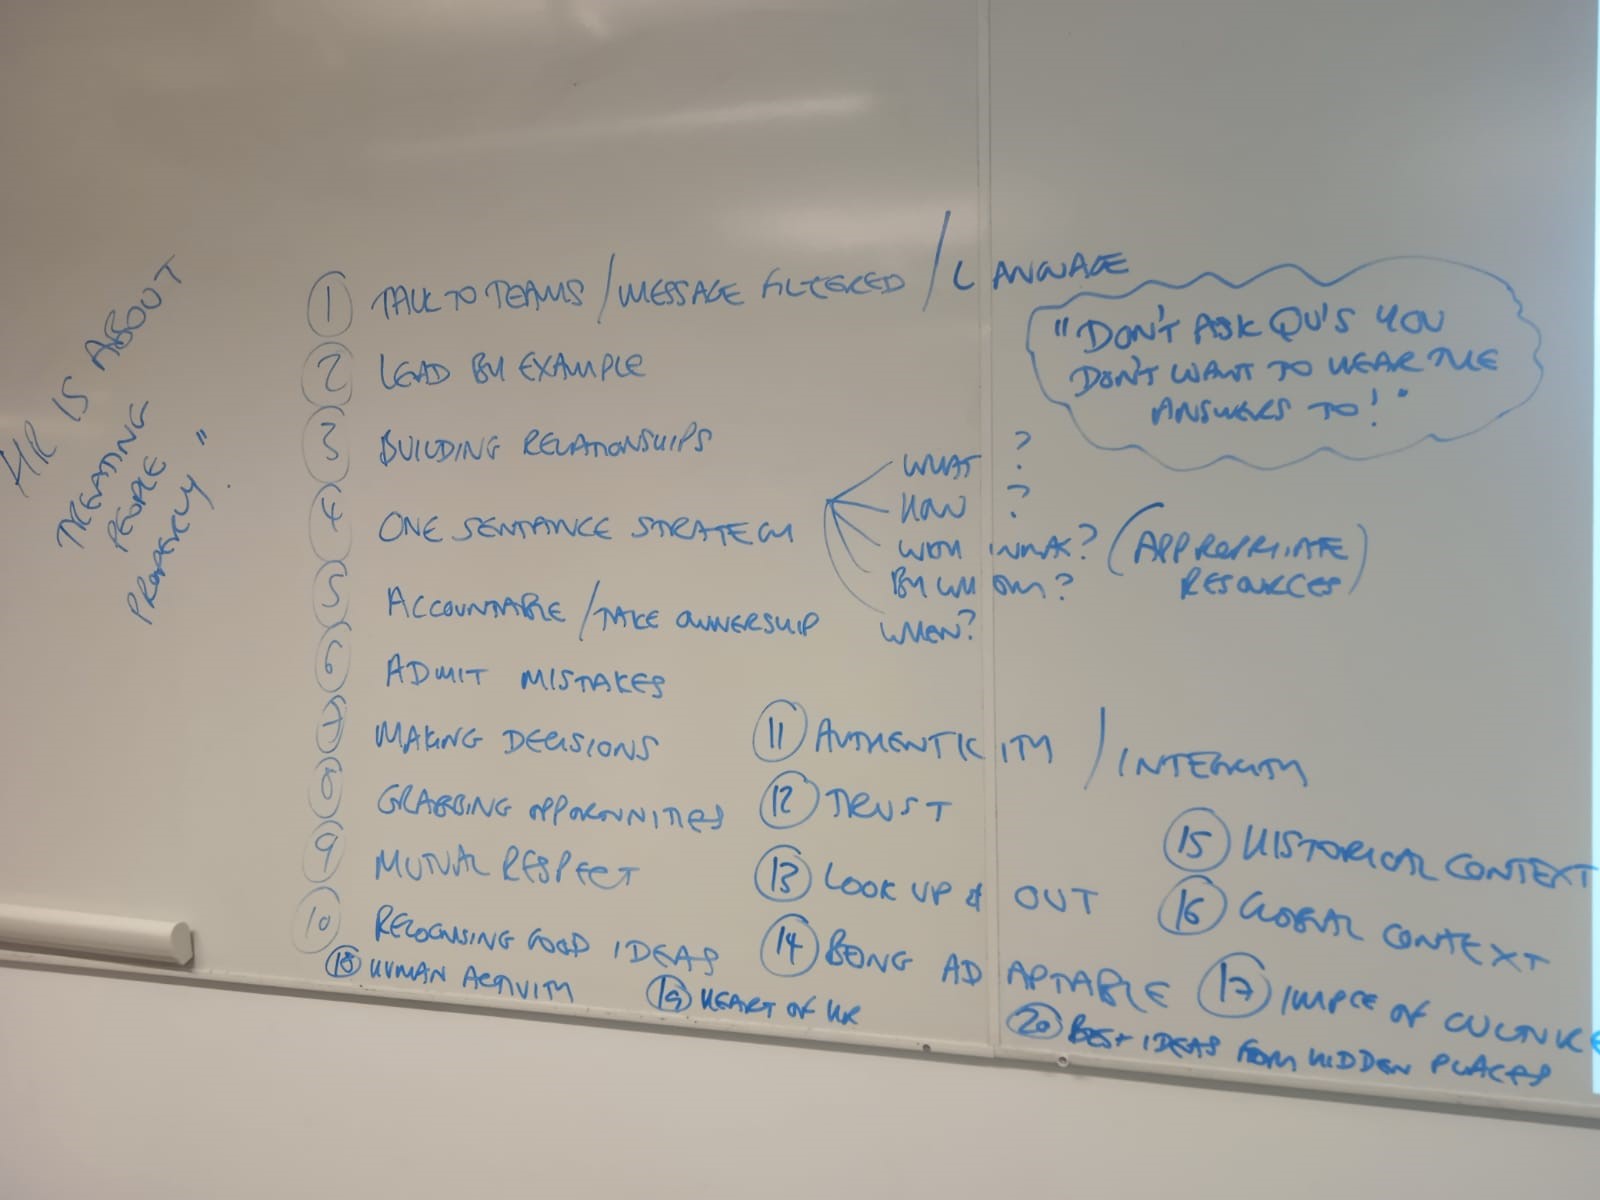 HR IS ABOUT
TREATING
PEOPLE
PROPERLY"
1 TALK TO TEAMS / MESSAGE FILTERED / LANGUAGE
2 LEAD BY EXAMPLE
3 BUILDING RELATIONSHIPS
4 ONE SENTANCE STRATEGY
WHAT ?
HOW ?
WITH WHAT? (APPROPRIATE RESOURCES)
BY WHOM?
WHEN?
5 ACCOUNTABLE / TAKE OWNERSHIP
6 ADMIT MISTAKES
7 MAKING DECISIONS
8 GRABBING OPPORTUNITIES
9 MUTUAL RESPECT
10 RECOGNISING GOOD IDEAS
"DON'T ASK QU'S YOU
DON'T WANT TO HEAR THE
ANSWERS TO!"
11 AUTHENTICITY / INTEGRITY
12 TRUST
13 LOOK UP & OUT
14 BEING ADAPTABLE
15 HISTORICAL CONTEXT
16 GLOBAL CONTEXT
17 IMPCE OF CULTURE
18 HUMAN ACTIVITY
19 HEART OF HR
20 BEST IDEAS FROM HIDDEN PLACES